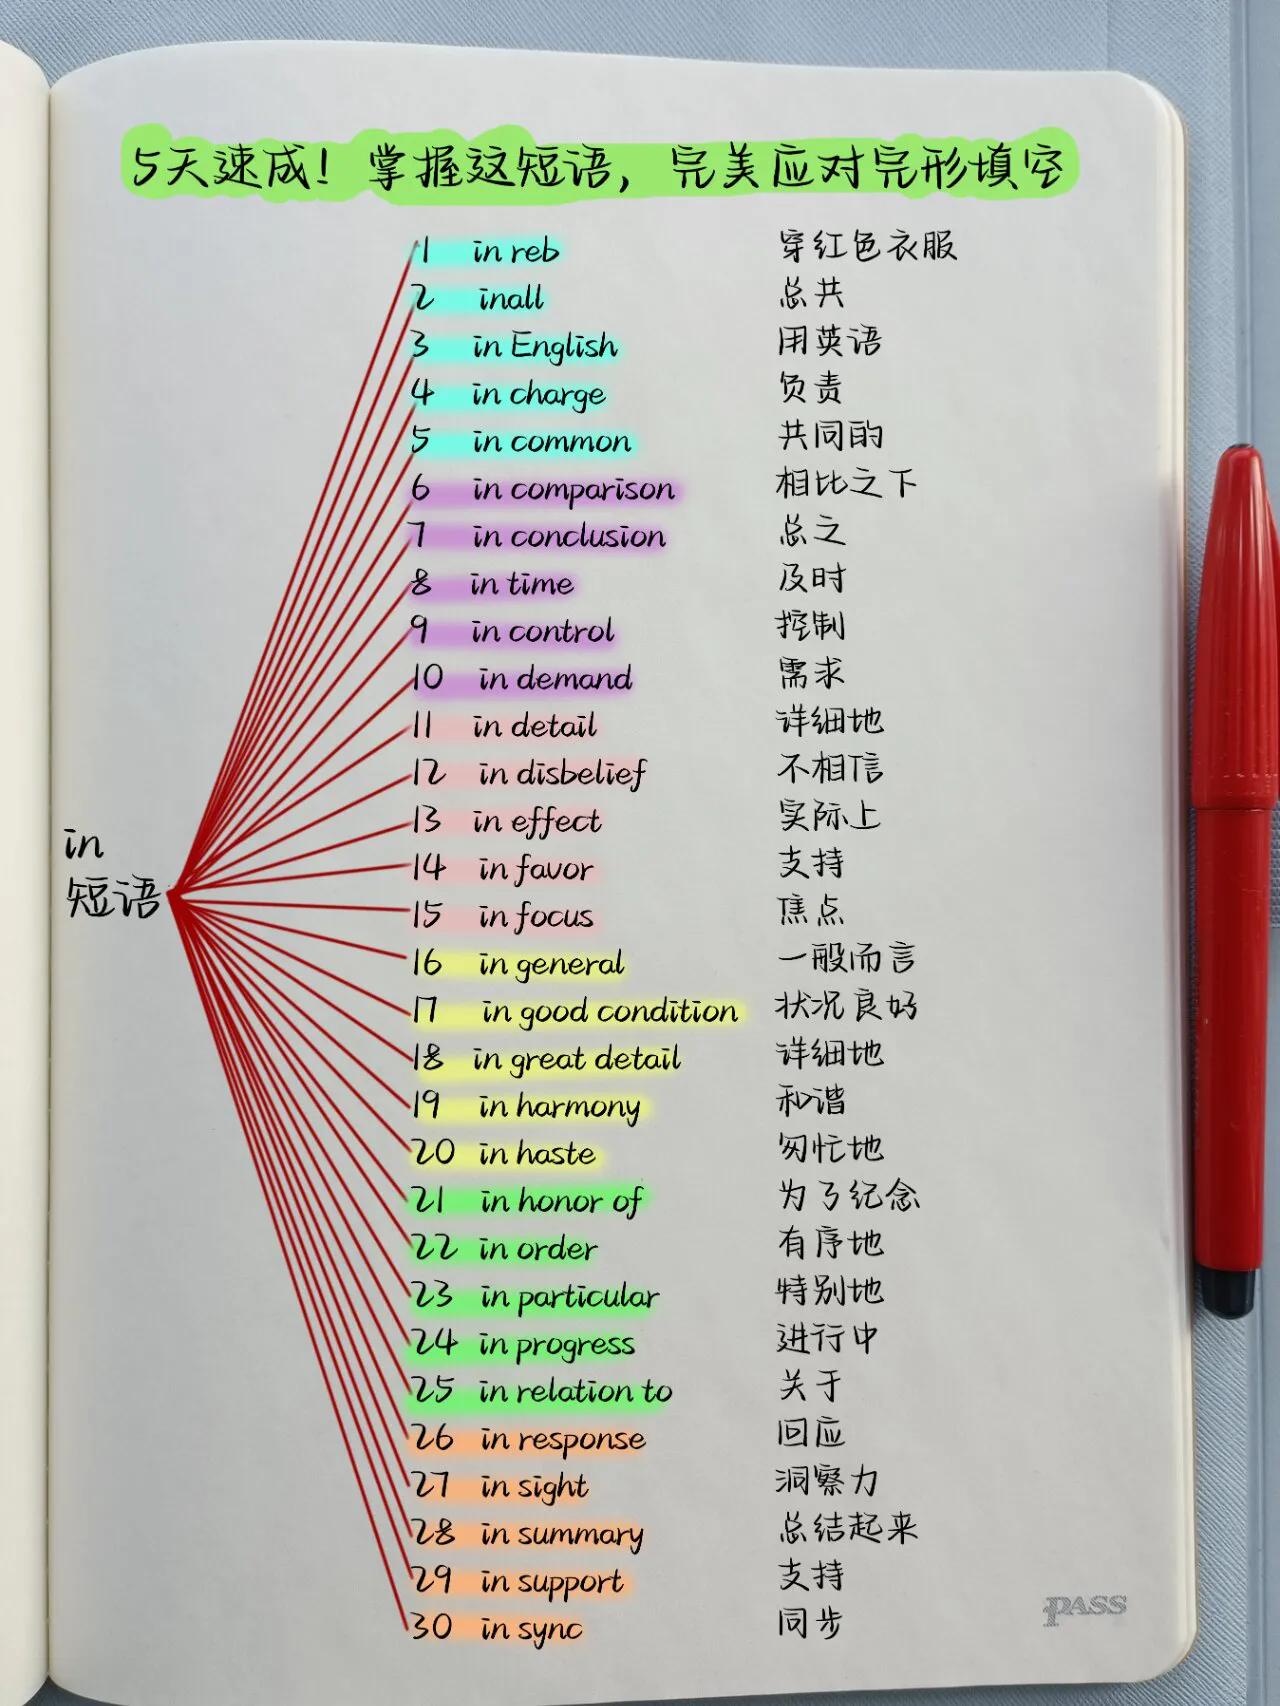 5天速成！掌握这短语，完美应对完形填空
1 in reb 穿红色衣服
2 inall 总共
3 in English 用英语
4 in charge 负责
5 in common 共同的
6 in comparison 相比之下
7 in conclusion 总之
8 in time 及时
9 in control 控制
10 in demand 需求
11 in detail 详细地
12 in disbelief 不相信
13 in effect 实际上
14 in favor 支持
in
短语
15 in focus 焦点
16 in general 一般而言
17 in good condition 状况良好
18 in great detail 详细地
19 in harmony 和谐
20 in haste 匆忙地
21 in honor of 为了纪念
22 in order 有序地
23 in particular 特别地
24 in progress 进行中
25 in relation to 关于
26 in response 回应
27 in sight 洞察力
28 in summary 总结起来
29 in support 支持
30 in sync 同步
PASS